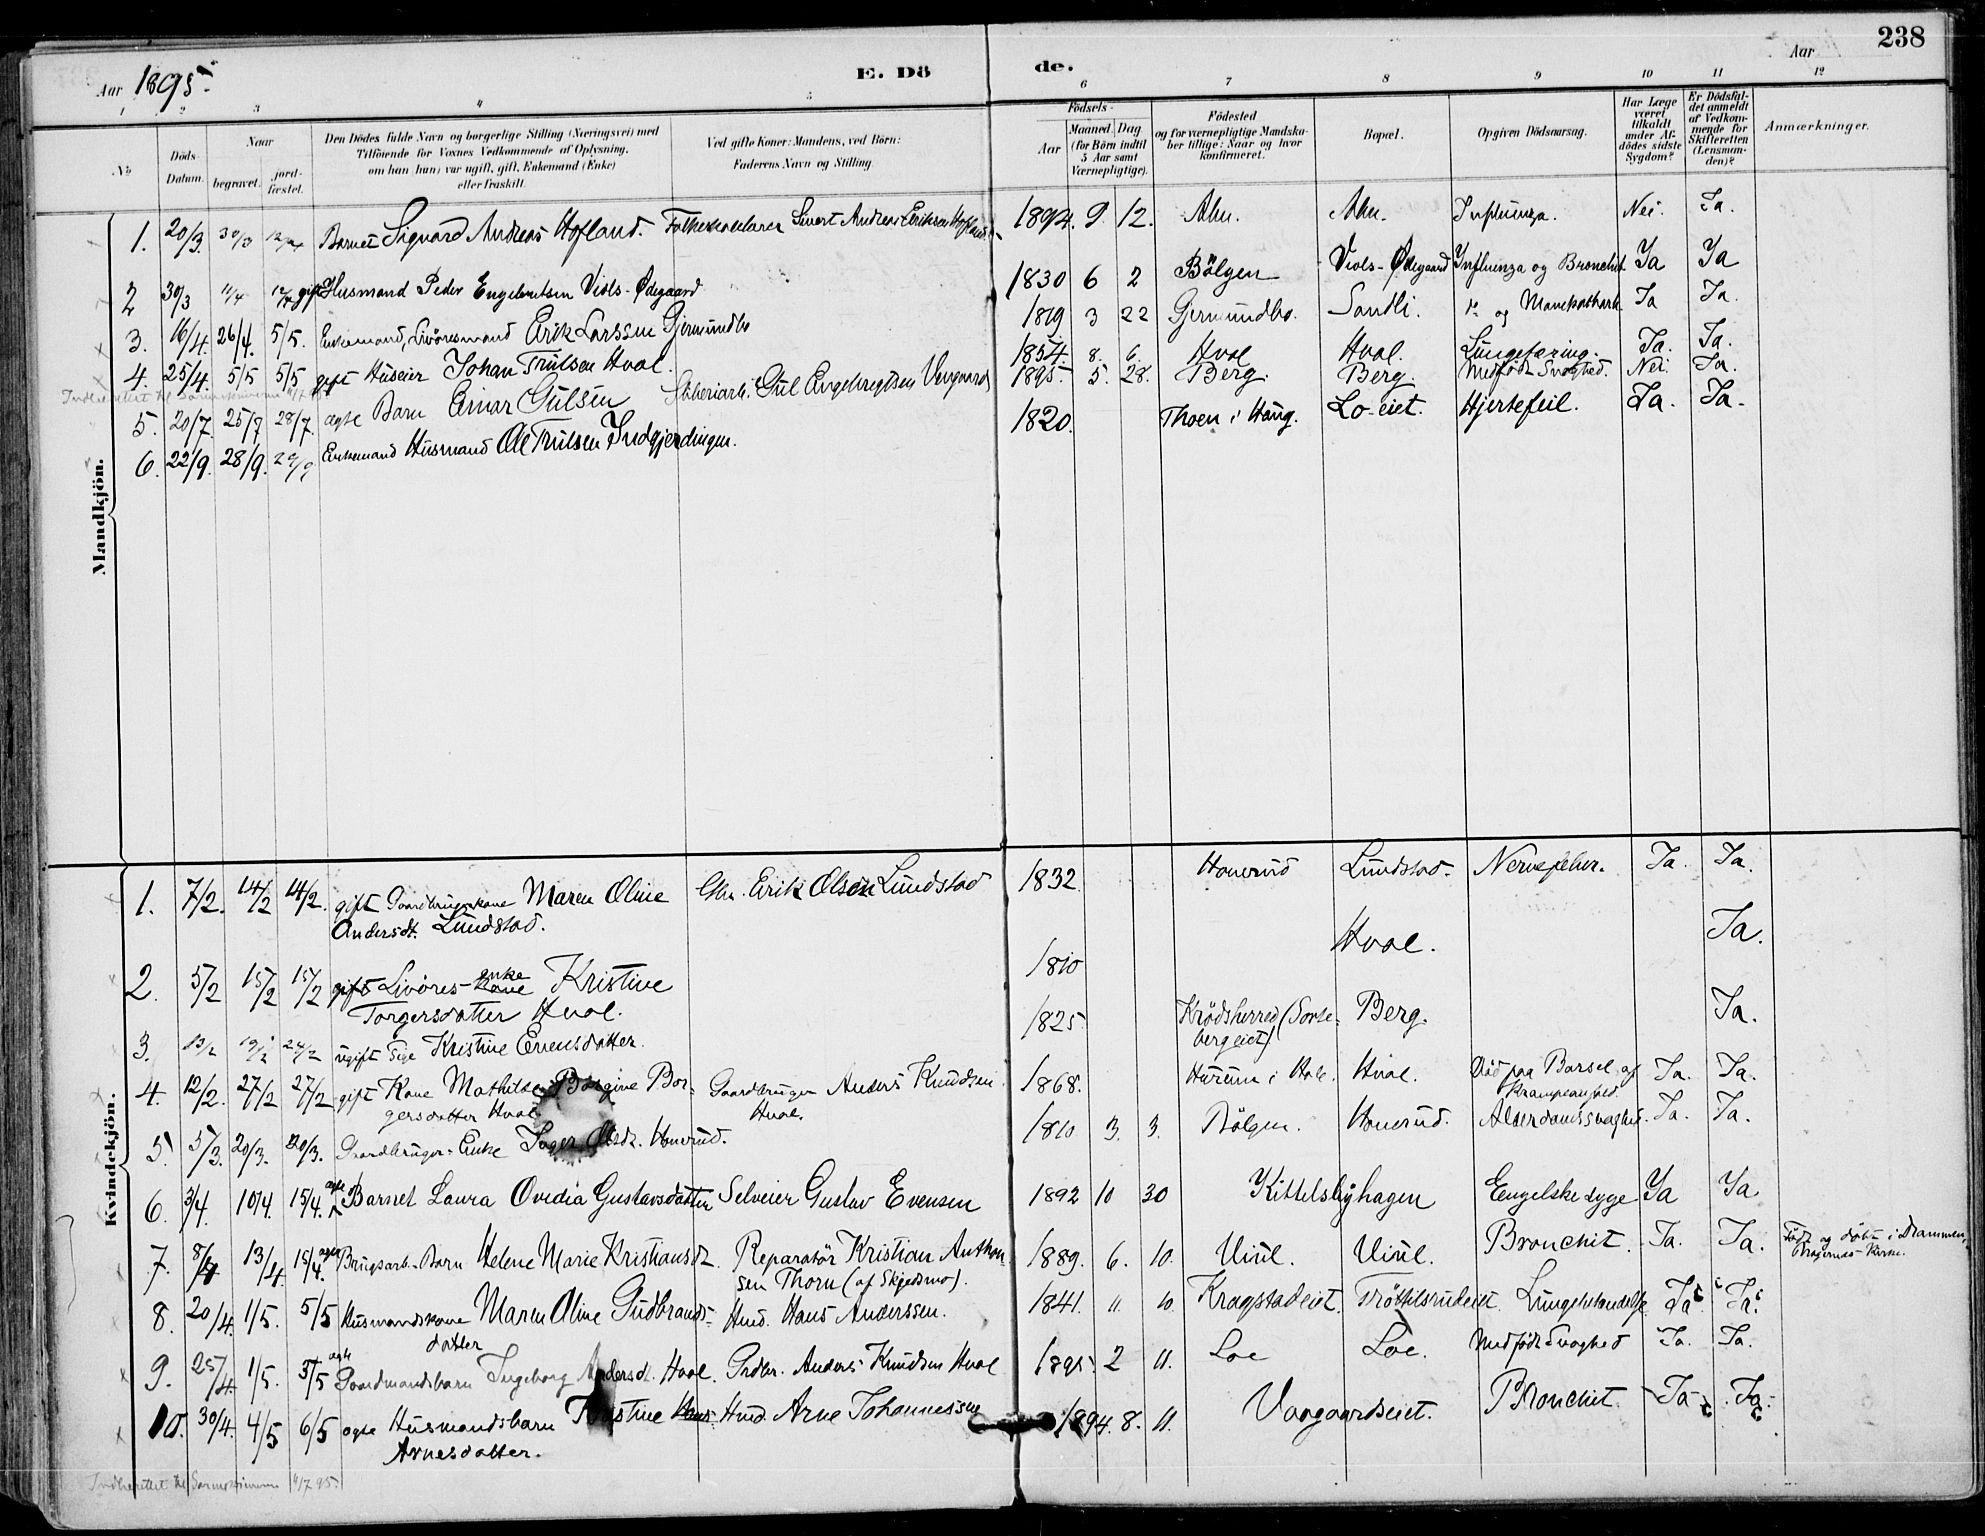 238
Aar 1895. E. Dö de. Aar
1 2 3 4 5 6 7 8 9 10 11 12
No
Döds-Datum.
Naar
begravet. jord-fæstet.
Den Dödes fulde Navn og borgerlige Stilling (Næringsvei) med
Tilföiende for Voxnes Vedkommende af Oplysning,
om han (hun) var ugift, gift, Enkemand (Enke)
eller fraskilt.
Ved gifte Koner: Mandens, ved Börn:
Faderens Navn og Stilling.
Födsels-
Aar Maaned. Dag
(for Börn indtil
5 Aar samt
Værnepligtige).
Födested
og for værnepligtige Mandska-
ber tillige: Naar og hvor
konfirmeret.
Bopæl.
Opgiven Dödsaarsag.
Har Læge
været
tilkaldt
under Af-
dödes sidste
Sygdom?
Er Dödsfal-
det anmeldt
af Vedkom-
mende for
Skifteretten
(Lensman-
den)?
Anmærkninger.
Mandkjön.
1. 20/3. 30/3 12/4 Barnet Sigvard Andreas Hofland. Folkeskolelærer Sivert Andreas Eriksen Hofland 1894. 9. 12. Influenza. Nei. Ja.
2 30/3 11/4 12/4 gift Husmand Peder Engebretsen Viols-Ødegaard 1830 6 2 Bölgen Viols-Ødegaard Influenza og Bronchit Ja Ja
3. 16/4. 26/4. 5/5. Enkemand, Livöresmand Erik Larssen Gjermundbo 1819 3 22 Gjermundbo. Sandli. do og Ja Ja.
4. 25/4. 5/5 5/5 gift Huseier Johan Trulsen Hval. 1854. 8. 6. Hval Hval. Ja. Ja.
Indberettet til
5. 20/7. 25/7 28/7. ægte Barn Einar Gulsen Engebregtsen 1895. 5. 28. Berg. Berg. Medfödt Svaghed. Nei. Ja.
6. 22/9. 28/9. 29/9 Enkemand Husmand Ole Trulsen Indgjerdingen. 1820. Thoen i Haug. Lo-eiet. Hjertefeil. Ja. Ja.
Kvindekjön.
1. 7/2. 14/2 14/2. gift Gaardbrugerkone Maren Oline Gbr. Erik Olsen Lundstad 1832 Honerud Lundstad. Nervefeber. Ja. Ja.
Andersdt. Lundstad.
2. 5/2 15/2 15/2 gift Livöres-kone enke Kristine 1810 Hval. Ja.
Torgersdatter Hval.
3. 13/2 19/2 24/2 ugift Pige Kristine Evensdatter. 1825 Krödsherred (Sorte- Berg. Ja.
bergeiet)
4. 12/2. 27/2 27/2 gift Kone Mathilde Borgine Bor- Gaardbruger Anders Knudsen 1868. Hurum i Hole. Hval. Död paa Barsel af Ja. Ja.
gersdatter Hval Hval.
5. 5/3. 20/3. 20/3. Gaardbruger-Enke Inger Olsdr. Honerud. 1810 3. 3. Bölgen. Honerud. Alderdomssvaghed. Ja. Ja.
6. 3/4. 10/4. 15/4. ægte Barnet Laura Ovidia Gustavsdatter Selveier Gustav Evensen 1892 10 30 Kittelsbyhagen Engelske syge Ja Ja
7. 8/4 13/4. 15/4. ægte Brugsarb. Barn Helene Marie Kristiansdt. Reparatör Kristian Anthon- 1889. 6. 10. Viul. Viul. Bronchit. Ja. Ja. Födt og döbt i Drammen,
sen Thorn (af Skjedsmo). Bragernes Kirke.
8. 20/4. 1/5. 5/5 Husmandskone Maren Oline Gudbrands- Hmd. Hans Anderssen. 1841. 11. 10. Kragstadeiet. Tröttilsrudeiet. Lungebetændelse Ja. Ja.
datter
9. 25/4. 1/5. 5/5 ægte Gaardmandsbarn Ingeborg Andersdt. Hval. Grdbr. Anders Knudsen Hval 1895. 2 11. Loe Loe. Medfödt Svaghed Ja. Ja.
10. 30/4. 4/5 6/5 ægte Husmandsbarn Kristine Hmd. Arne Johannessen 1894. 8. 11. Vaagaardseiet. Bronchit. Ja. Ja.
Arnesdatter.
Indberettet til 4/7 95.